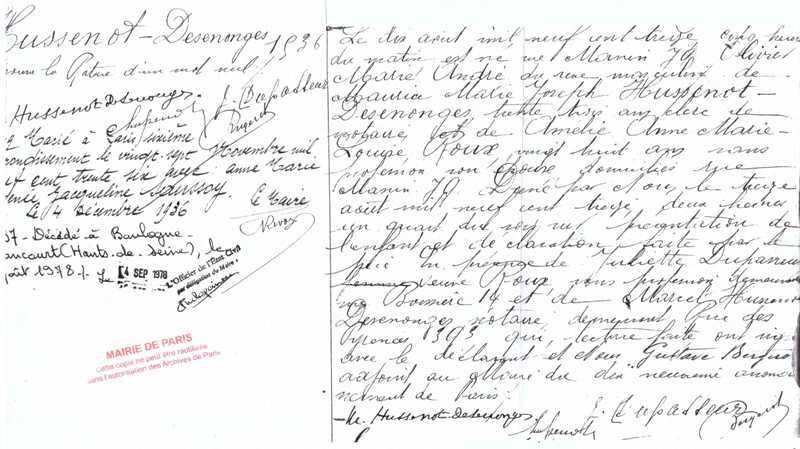 Hussenot-Desenonges 1936
rayure d'un mot nul
Hussenot Desenonges. L. Dupasseur
Marié à Paris sixième
arrondissement le vingt-sept Novembre mil
neuf cent trente six avec Anne Marie
Jacqueline
Le 4 Décembre 1936 Le Maire
Décédé à Boulogne-
Billancourt (Hauts-de-Seine), le
août 1978. Le 4 SEP 1978
L'Officier de l'Etat Civil
par délégation du Maire
MAIRIE DE PARIS
Cette copie ne peut être réutilisée
sans l'autorisation des Archives de Paris
Le dix août mil neuf cent treize cinq heures
du matin est né rue Manin 79 Olivier
Marie André du sexe masculin de
Maurice Marie Joseph Hussenot-
Desenonges, trente trois ans clerc de
notaire, et de Amélie Anne Marie-
Louise Roux, vingt huit ans sans
profession son épouse domiciliés rue
Manin 79. Dressé par Nous, le treize
août mil neuf cent treize, deux heures
un quart du soir sur présentation de
l'enfant et déclaration faite par le
père En présence de Juliette Dupasseur
veuve Roux, sans profession demeurant
rue 14 et de Marcel Hussenot
Desenonges notaire, demeurant rue des
Pyrénées 393 qui, lecture faite ont signé
avec le déclarant et Nous Gustave
adjoint au Maire du dix neuvième arrondis-
sement de Paris.
M. Hussenot Desenonges L. Dupasseur